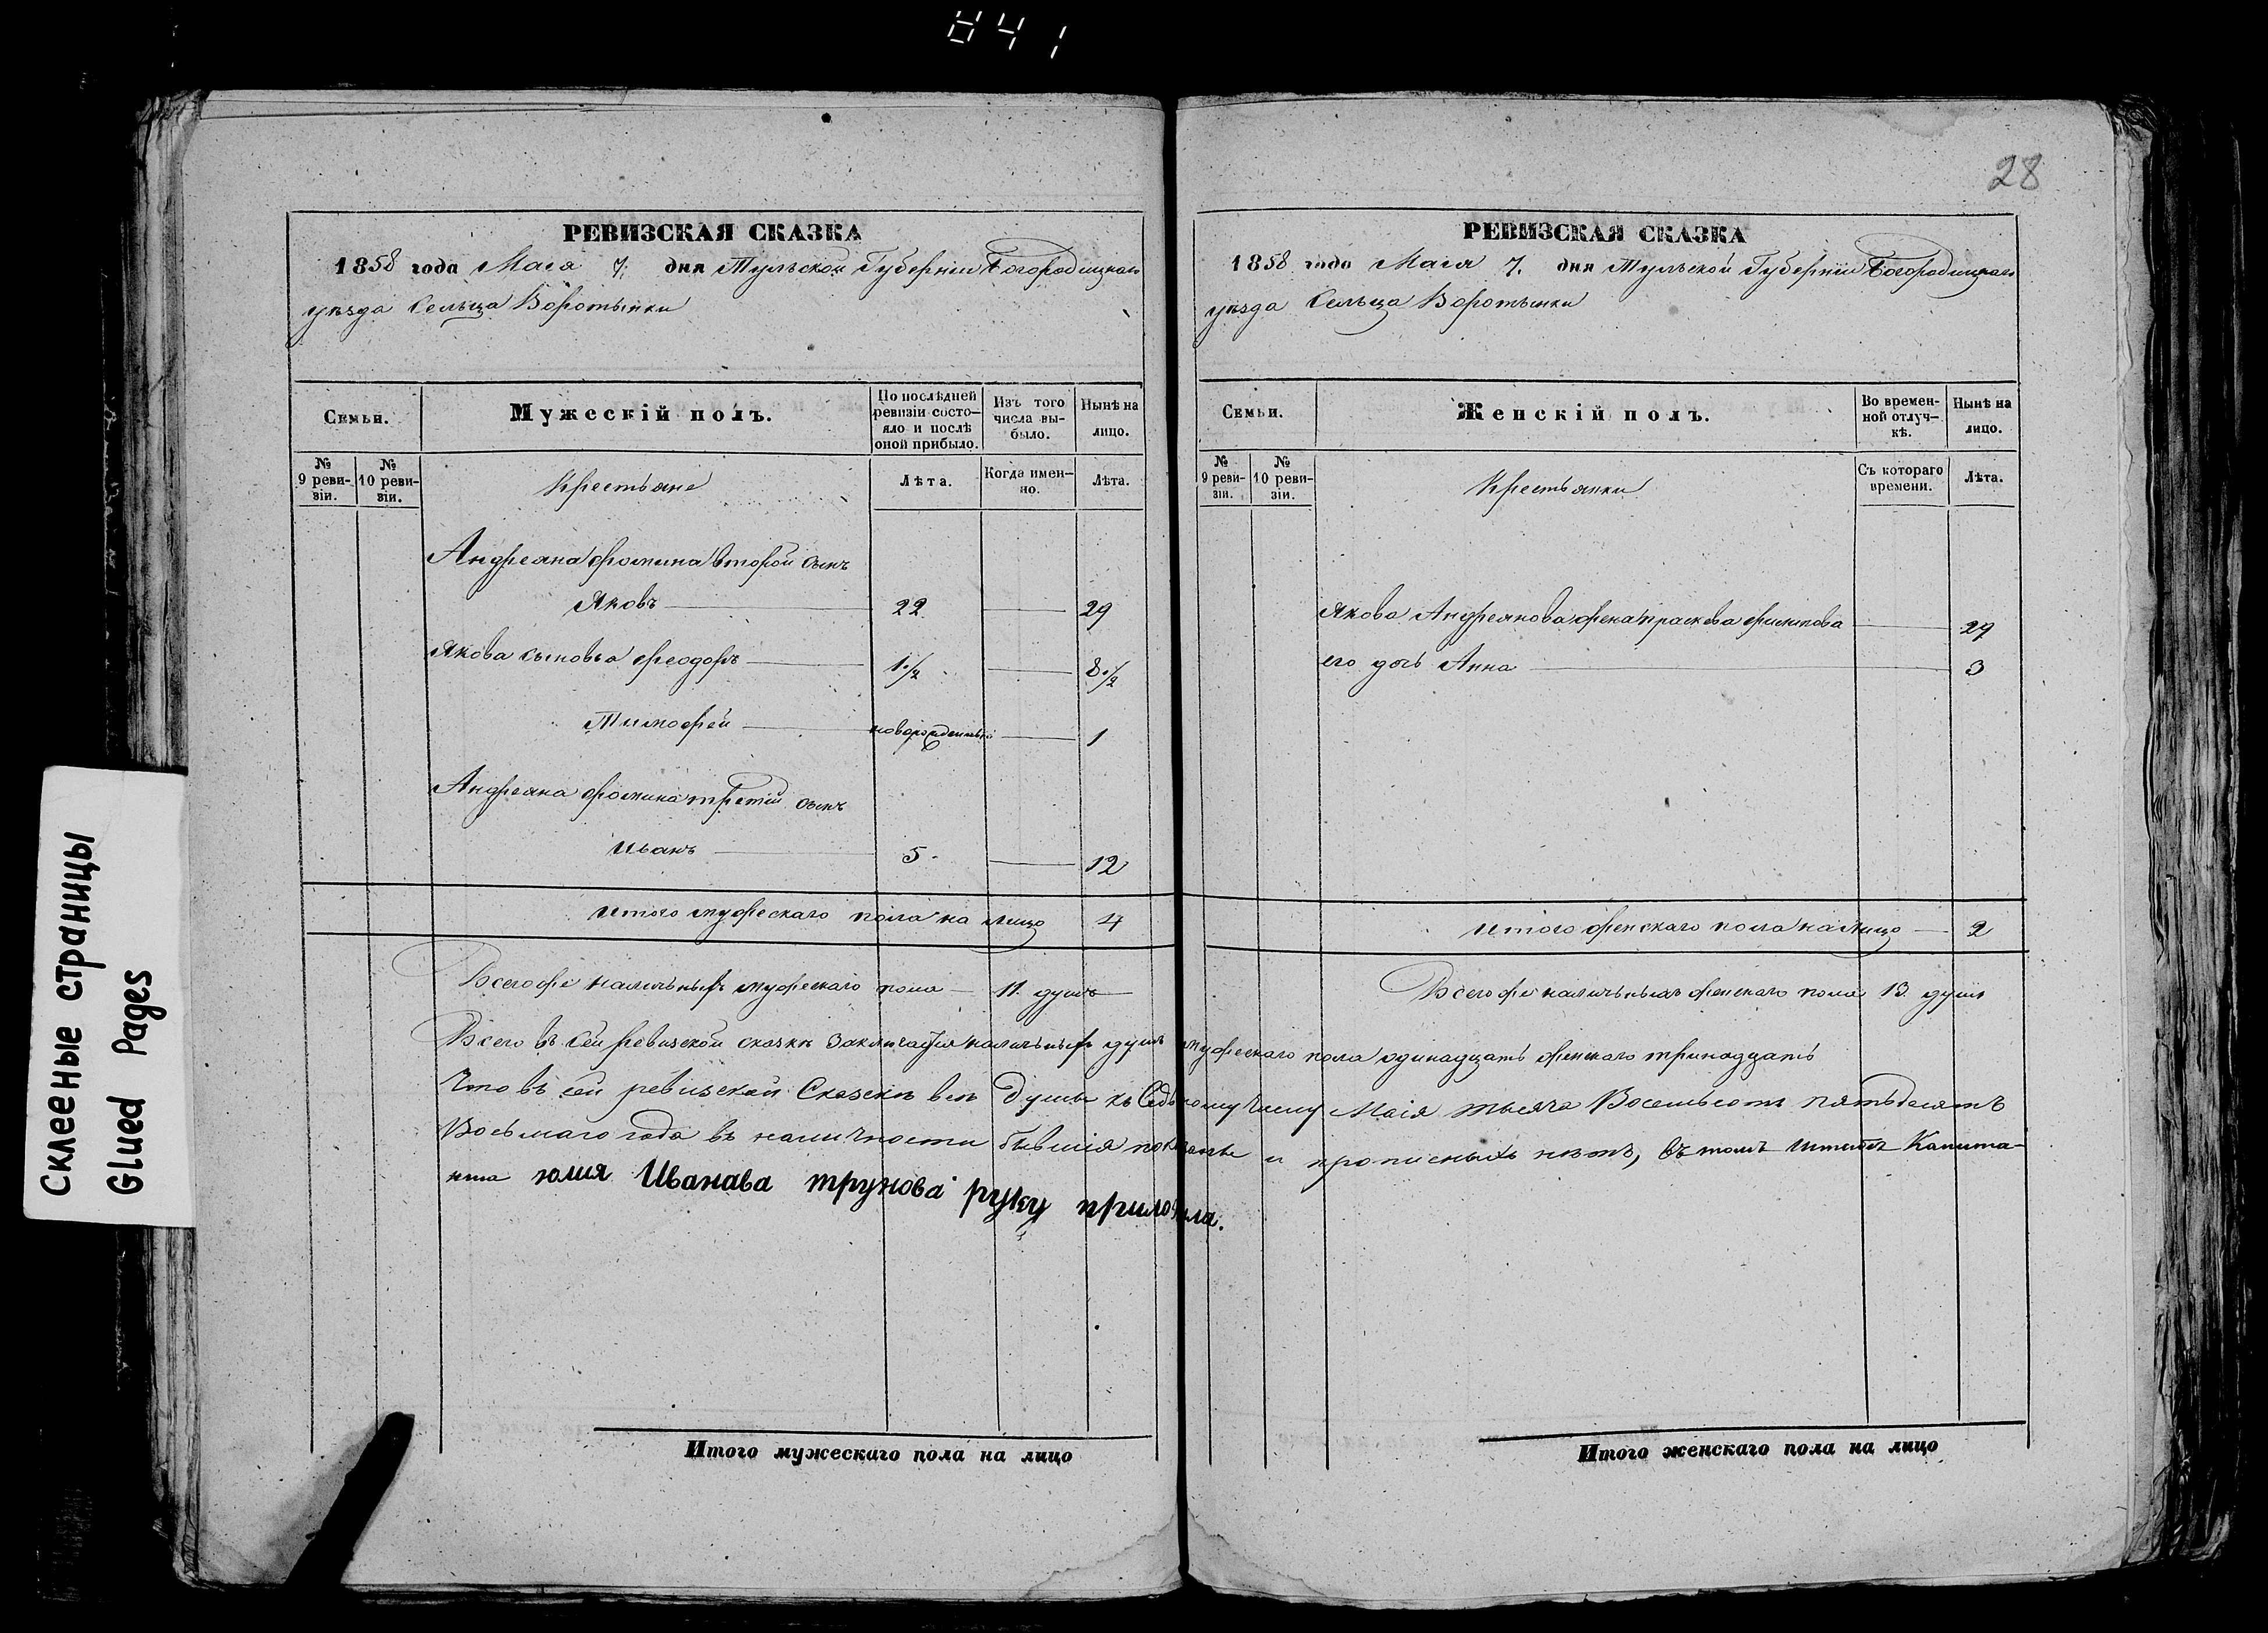 841
28
Склееные страницы
Glued Pages
РЕВИЗСКАЯ СКАЗКА
1858 года Маія 7. дня Тульской Губерніи Богородицкаго
уѣзда Сельца Воротынки
Семьи.
Мужескій полъ.
По послѣдней
ревизіи состо-
яло и послѣ
оной прибыло.
Изъ того
числа вы-
было.
Нынѣ на
лицо.
№
9 реви-
зіи.
№
10 реви-
зіи.
Крестьяне
Лѣта.
Когда имен-
но.
Лѣта.
Андреяна Фомина второй сынъ
Яковъ 22 29
Якова сыновья Феодоръ 1 1/2 8 1/2
Тимофей новорожденный 1
Андреяна Фомина третій сынъ
Иванъ 5 12
Итого мужескаго пола на лицо 4
Всего же наличныхъ мужескаго пола 11 душъ
РЕВИЗСКАЯ СКАЗКА
1858 года Маія 7. дня Тульской Губерніи Богородицкаго
уѣзда Сельца Воротынки
Семьи.
Женскій полъ.
Во времен-
ной отлуч-
кѣ.
Нынѣ на
лицо.
№
9 реви-
зіи.
№
10 реви-
зіи.
Крестьянки
Съ котораго
времени.
Лѣта.
Якова Андреянова жена Праскева Филипова 29
его дочь Анна 3
Итого женскаго пола на лицо 2
Всего же наличныхъ женскаго пола 13 душъ
Всего въ сей ревизской сказкѣ заключается наличныхъ душъ мужескаго пола одинадцать женскаго тринадцать
Что въ сей ревизской Сказкѣ всѣ души къ Седьмому числу Маія тысяча Восемьсотъ пятьдесятъ
Восьмаго года въ наличности бывшія показаны и прописныхъ нѣтъ, въ томъ Капита-
нша юлия Иванава трунова руку приложила.
Итого мужескаго пола на лицо
Итого женскаго пола на лицо